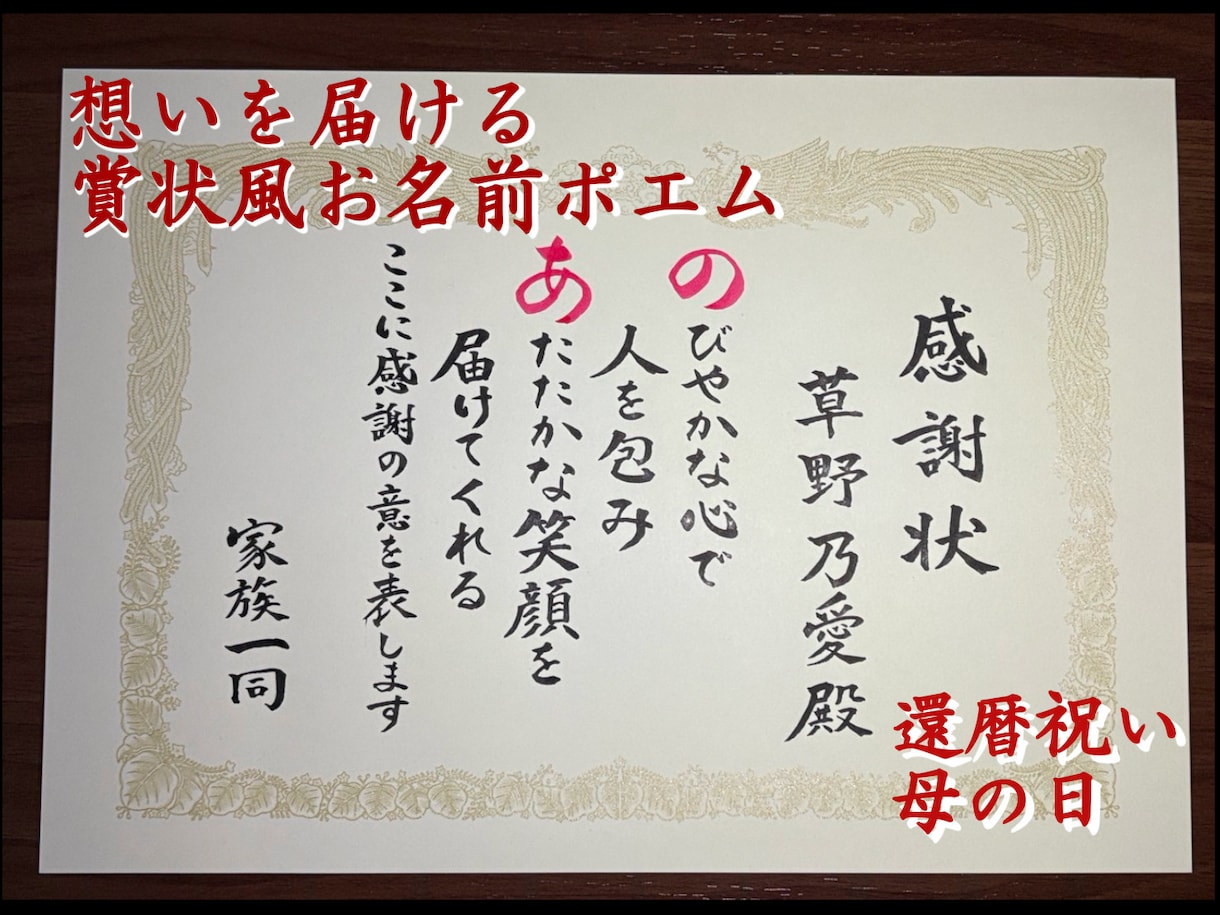 想いを届ける
賞状風お名前ポエム
感謝状
草野乃愛殿
のびやかな心で
人を包み
あたたかな笑顔を
届けてくれる
ここに感謝の意を表します
家族一同
還暦祝い
母の日